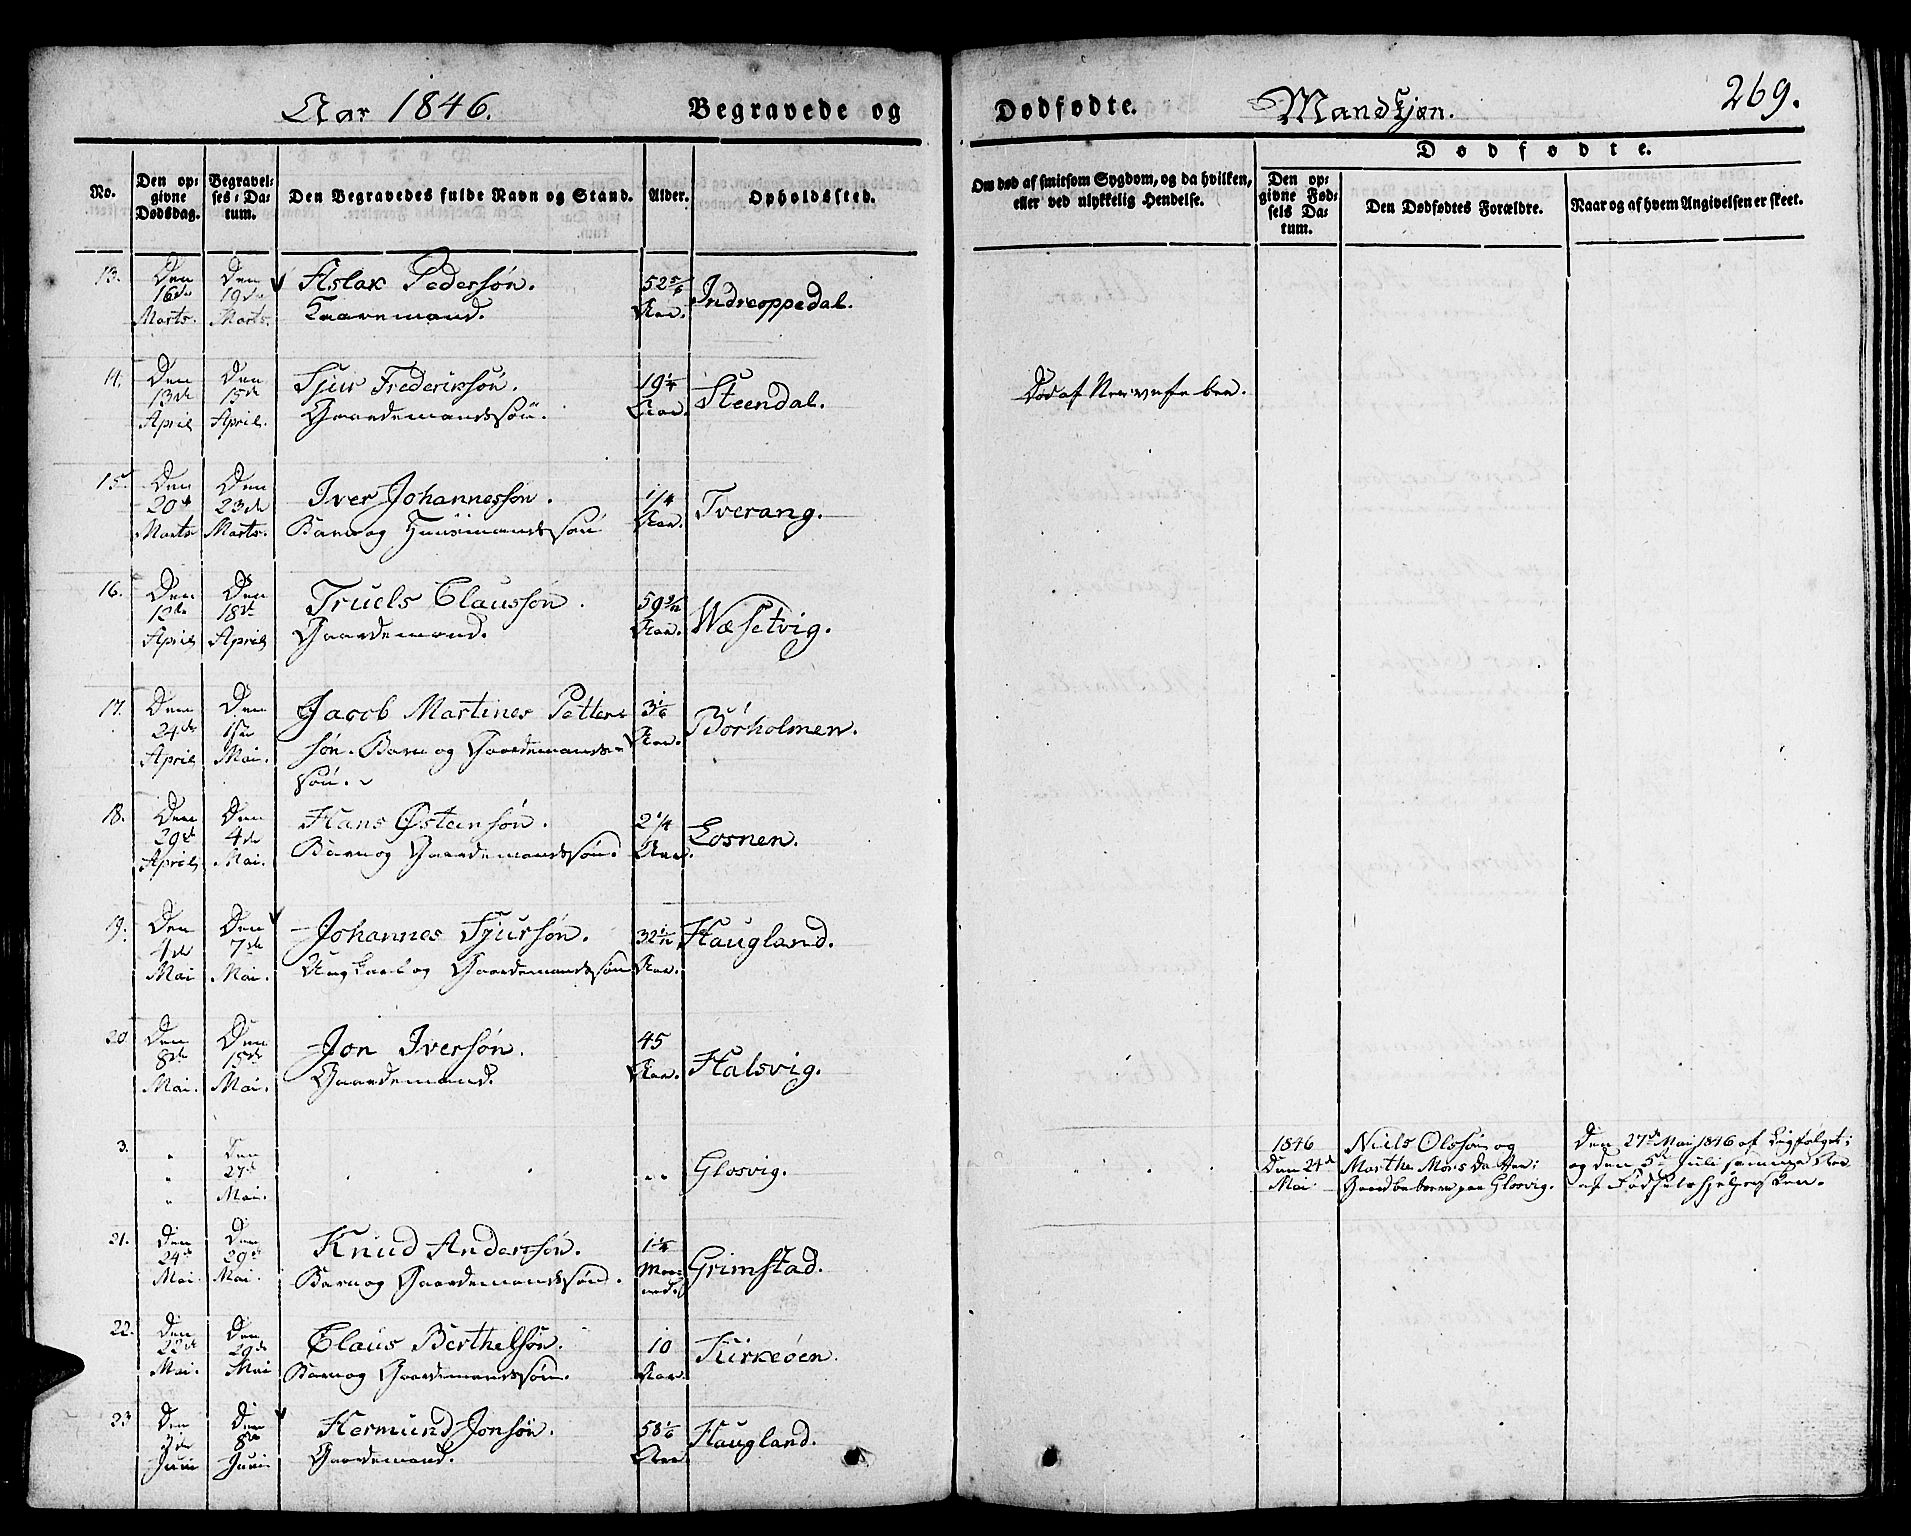 Aar 1846. Begravede og Dødfødte. Mandkjøn. 269.
No.
Den opgivne Dødsdag.
Begravelses-Datum.
Den Begravedes fulde Navn og Stand.
Alder.
Opholdssted.
Om død af smitsom Sygdom, og da hvilken, eller ved ulykkelig Hendelse.
Dødfødte.
Den opgivne Fødsels Datum.
Den Dødfødtes Forældre.
Naar og af hvem Angivelsen er skeet.
13. Den Den Aslak Pedersøn. 52 5/6 Indreoppedal.
16de 19de Kaaremand. Aar.
Marts. Marts.
14. Den Den Sjur Frederiksøn. 19 1/4 Steendal. Død af Nervefeber.
13de 15de Gaardemandssøn. Aar.
April April.
15. Den Den Iver Johannessøn. 1/4 Tverang.
20de 23de Barn og Huusmandssøn Aar.
Marts Marts.
16. Den Den Truels Claussøn. 59 Wæsetvig.
12te 18de Gaardemand. Aar.
April April
17. Den Den Jacob Martines Petter- 3 1/6 Børholmen.
24de 1ste søn. Barn og Gaardemands- Aar.
April Mai. søn.
18. Den Den Hans Østensøn. 2 1/4 Losnen.
29de 4de Barn og Gaardemandssøn. Aar.
April Mai.
19. Den Den Johannes Sjursøn. 32 1/12 Haugland.
4de 7de Ungkarl og Gaardemandssøn Aar.
Mai Mai.
20 Den Den Jon Iversøn. 45 Halsvig.
8de 15de Gaardemand. Aar.
Mai. Mai.
3. " Den " Glosvig. 1846 Niels Olssøn og Den 27de Mai 1846 af Ligfølget;
" 27de Den 24de Marthe Monsdatter; og den 5te Juli samme Aar
" Mai. Mai. Gaardbeboere paa Glosvig. af Fødselshjelpersken.
21. Den Den Knud Anderssøn. 1 1/4 Grimstad.
24de 29de Barn og Gaardemandssøn. Maaned.
Mai. Mai.
22. Den Den Claus Berthelsøn. 10 Kirkeøen.
22de 29de Barn og Gaardemandssøn. Aar.
Mai. Mai
23 Den Den Hermund Jonsøn. 58 1/6 Haugland.
8de Gaardemand. Aar
Juni Juni